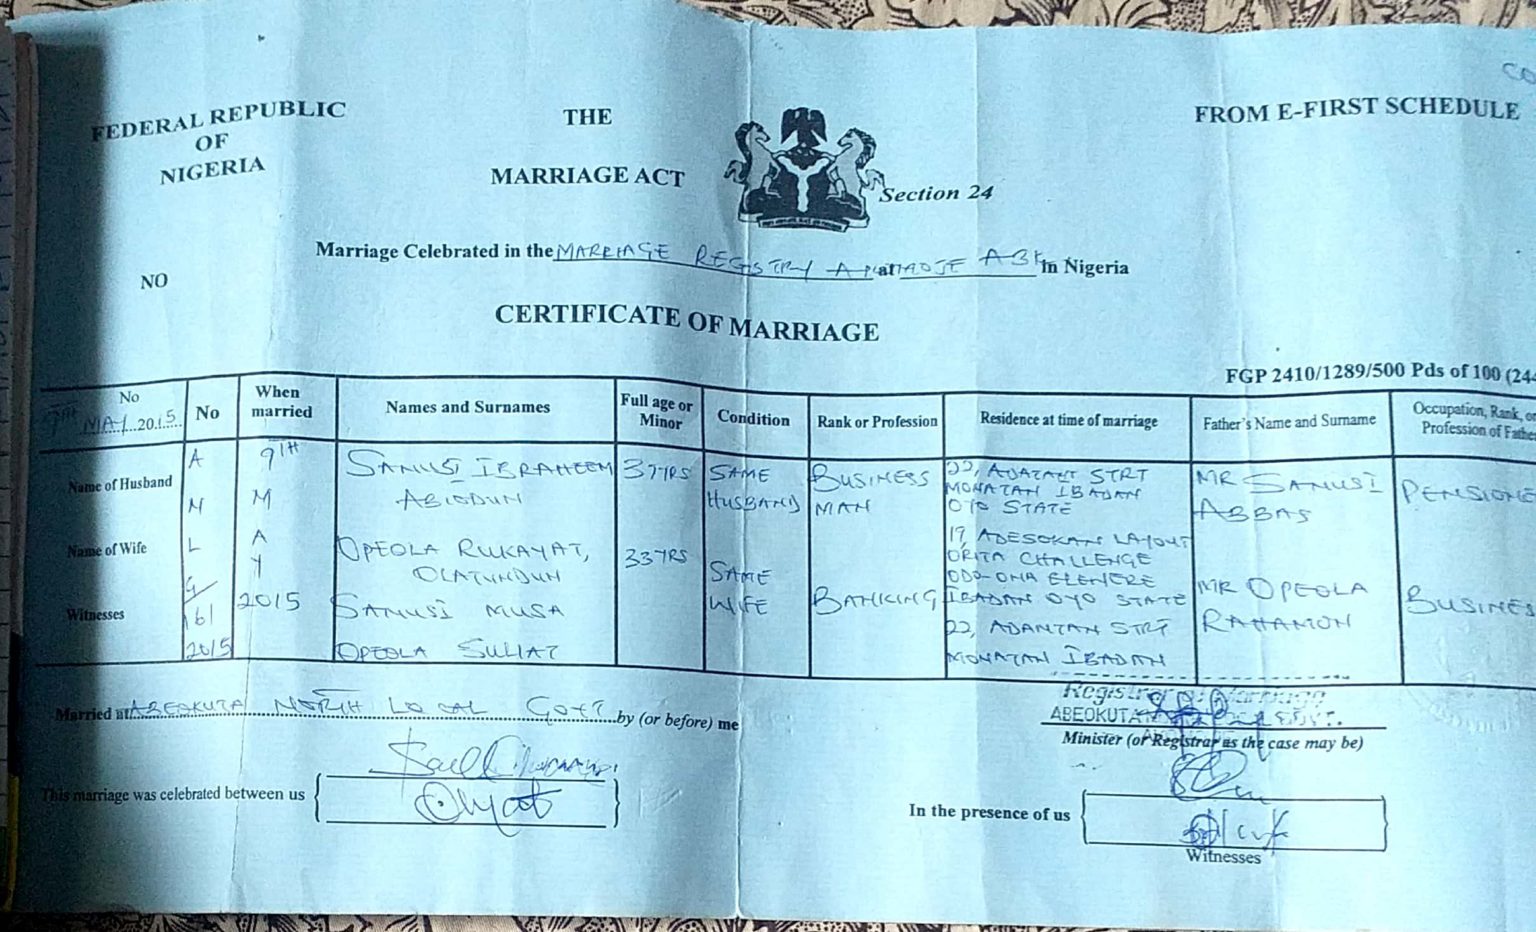 CO
FEDERAL REPUBLIC
OF
NIGERIA
THE
MARRIAGE ACT
Section 24
FROM E-FIRST SCHEDULE
Marriage Celebrated in the MARRIAGE REGISTRY at ABK in Nigeria
NO
CERTIFICATE OF MARRIAGE
FGP 2410/1289/500 Pds of 100 (244
No
MAY 2015
No
When married
Names and Surnames
Full age or Minor
Condition
Rank or Profession
Residence at time of marriage
Father's Name and Surname
Occupation, Rank, or Profession of Father
Name of Husband
Name of Wife
Witnesses
A
N
L
G/
161
2015
9TH
M
A
Y
2015
SANUSI IBRAHEEM
ABIODUN
OPEOLA RUKAYAT,
OLATUNDUN
SANUSI MUSA
OPEOLA SULIAT
37YRS
33YRS
SAME
HUSBAND
SAME
WIFE
BUSINESS
MAN
BANKING
22, STRT
MONATAN IBADAN
OYO STATE
19, ADESOKAN LAYOUT
ORITA CHALLENGE
ODO-ONA ELEWERE
IBADAN OYO STATE
22, STRT
MONATAN IBADAN
MR SANUSI
ABBAS
MR OPEOLA
RAHAMON
PENSIONE
BUSINES
Married at ABEOKUTA NORTH LOCAL GOVT by (or before) me
ABEOKUTA
Minister (or Registrar as the case may be)
This marriage was celebrated between us
In the presence of us
Witnesses